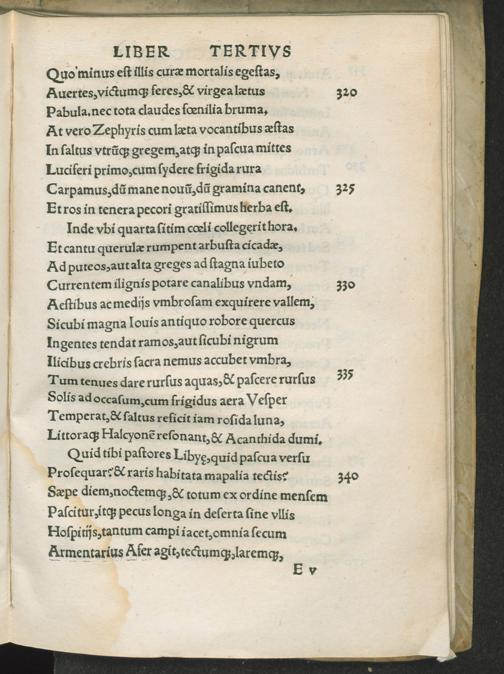 LIBER TERTIVS
Quo minus est illis curæ mortalis egestas,
Auertes, victumqꝫ feres, & virgea lætus 320
Pabula. nec tota claudes fœnilia bruma.
At vero Zephyris cum læta vocantibus æstas
In saltus vtrūqꝫ gregem, atqꝫ in pascua mittes
Luciferi primo, cum sydere frigida rura
Carpamus, dū mane nouū, dū gramina canent, 325
Et ros in tenera pecori gratissimus herba est.
Inde vbi quarta sitim cœli collegerit hora.
Et cantu querulæ rumpent arbusta cicadæ,
Ad puteos, aut alta greges ad stagna iubeto
Currentem ilignis potare canalibus vndam, 330
Aestibus ac medijs vmbrosam exquirere vallem,
Sicubi magna Iouis antiquo robore quercus
Ingentes tendat ramos, aut sicubi nigrum
Ilicibus crebris sacra nemus accubet vmbra,
Tum tenues dare rursus aquas, & pascere rursus 335
Solis ad occasum, cum frigidus aera Vesper
Temperat, & saltus reficit iam rosida luna,
Littoraqꝫ Halcyonē resonant, & Acanthida dumi.
Quid tibi pastores Libyę, quid pascua versu
Prosequar? & raris habitata mapalia tectis? 340
Sæpe diem, noctemqꝫ, & totum ex ordine mensem
Pascitur, itqꝫ pecus longa in deserta sine vllis
Hospitijs, tantum campi iacet, omnia secum
Armentarius Afer agit, tectumqꝫ, laremqꝫ,
E v